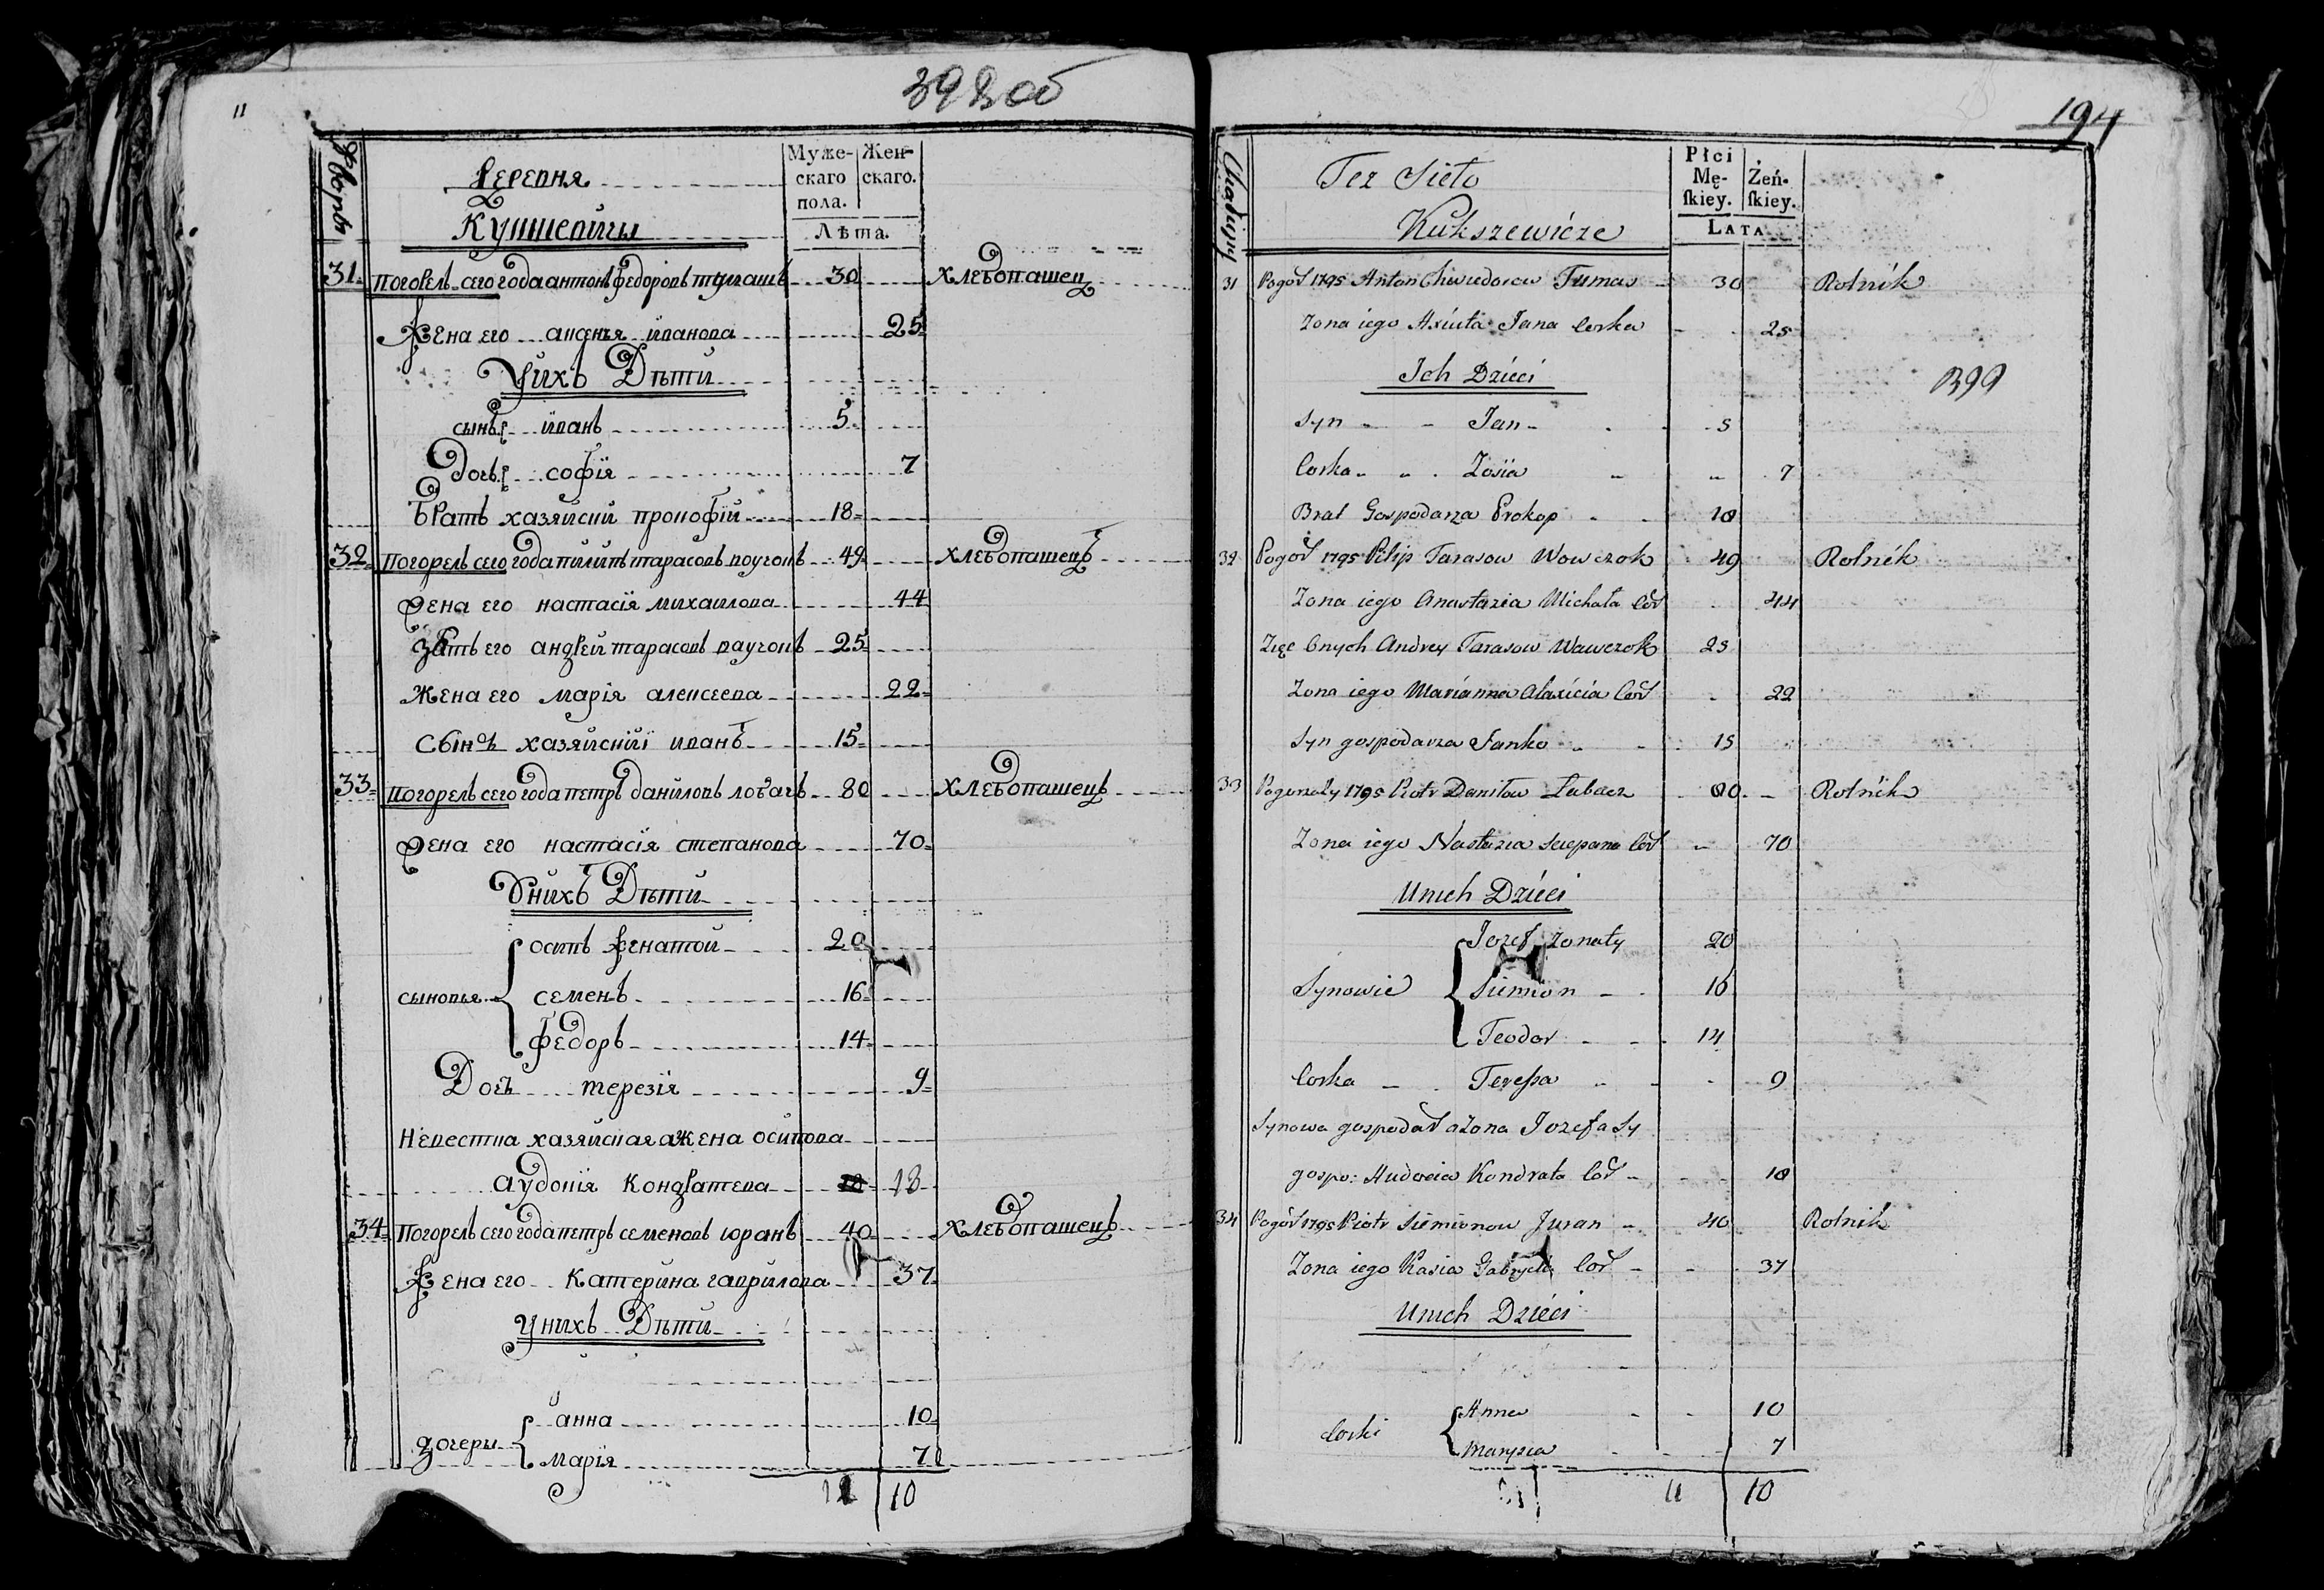 11
398 об
Дворы
Деревня
Кукшевичи
Муже-скаго пола.
Жен-скаго.
Лѣта.
31 погорель сего года антонъ федоровъ тумашъ 30 хлебопашец
Жена его аксенья иванова 25
У них Дѣти
сынъ иванъ 5
Дочь софїя 7
Братъ хазяйский прокофїй 18
32 погорель сего года пилипъ тарасовъ воучокъ 49 хлебопашецъ
Жена его настасїя михаилова 44
Зять его андрей тарасовъ ваучокъ 25
Жена его марїя алексеева 22
Сынъ хазяйскиї иванъ 15
33 погорель сего года петръ даниловъ лобачъ 80 хлебопашецъ
Жена его настасїя степанова 70
У нихъ Дѣти
осипъ женатой 20
сыновья семенъ 16
федоръ 14
Дочь терезїя 9
Невестка хазяйская а жена осипова
аудокїя Кондратева 18
34 Погорель сего года петръ семеновъ юранъ 40 хлебопашецъ
Жена его Катерина гаврилова 37
У нихъ Дѣти
анна 10
дочеры марїя 7
10
194
Tez Sieło
Kukszewicze
Płci Mę-ſkiey.
Żeń-ſkiey.
LATA
31 Pogoř 1795 Anton Chwiedorow Tumas 30 Rolnik
Zona iego Axiuta Jana Corka 25
Ich Dzieci
399
Syn Jan 5
Corka Zosia 7
Brat Gospodarza Prokop 18
32 Pogoř 1795 Pilip Tarasow Wowczok 49 Rolnik
Zona iego Anastazia Michała Coř 44
Zięc Onych Andrey Tarasow Wawczok 25
Zona iego Marianna Alaxieia Coř 22
Syn gospodarza Janko 15
33 Pogorzały 1795 Piotr Daniłow Łabacz 80 Rolnik
Zona iego Nastazia Sciepana Coř 70
U nich Dzieci
Jozef zonaty 20
Synowie Siemion 16
Teodor 14
Corka Teressa 9
Synowa gospodař a Zona Jozefa Sy
gospo: Audocia Kondrata Coř 18
34 Pogoř 1795 Piotr Siemionow Juran 40 Rolnik
Zona iego Kasia Gabryela Coř 37
U nich Dzieci
Anna 10
Corki Maryna 7
11 10